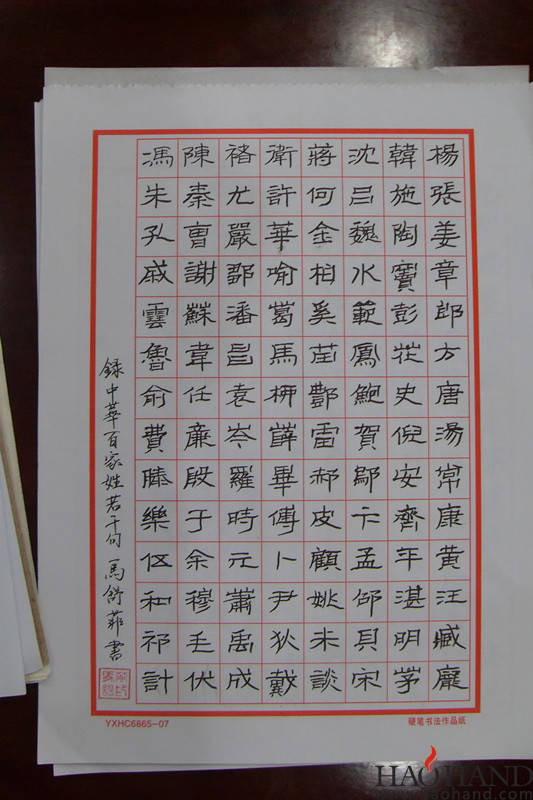 馮陳褚衛蔣沈韓楊
朱秦尤許何吕施張
孔曹嚴華金魏陶姜
戚謝鄒喻柏水竇章
雲蘇潘葛奚範彭郎
魯韋昌馬苗鳳花方
俞任袁柳酆鮑史唐
費廉岑薛雷賀倪湯
滕殷羅畢郝鄔安常
樂于時傅皮卞齊康
伍余元卜顧孟平黄
和穆蕭尹姚邵湛汪
祁毛禹狄米貝明臧
計伏成戴談宋茅龐
録中華百家姓若干句 馬舒菲書
YXHC6865-07
硬笔书法作品纸
HAOHAND
haohand.com